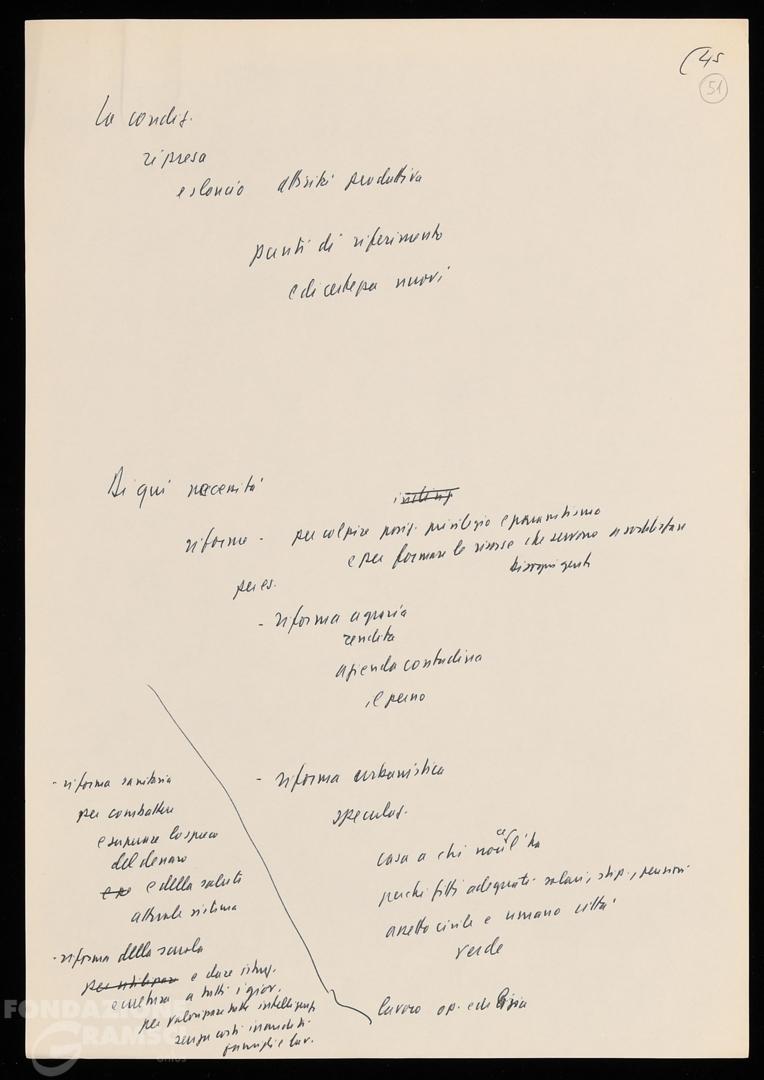 (45
51
La condiz.
ripresa
e slancio attività produttiva
punti di riferimento
e di certezza nuovi
Di qui necessità
riforme - per colpire posiz. privilegio e parassitismo
e per formare le risorse che servono a soddisfare
bisogni gente
per es.
- riforma agraria
rendita
azienda contadina
il perno
- riforma urbanistica
speculaz.
casa a chi non ce l'ha
perché fitti adeguati salari, stip., pensioni
assetto civile e umano città
verde
lavoro op. edilizia
- riforma sanitaria
per combattere
e superare lo spreco
del denaro
e della salute
attuale sistema
- riforma della scuola
e dare istruz.
e cultura a tutti i giov.
per valorizzare tutte intelligenze
senza costi insensati
famiglie lav.
FONDAZIONE
GRAMSCI
onlus